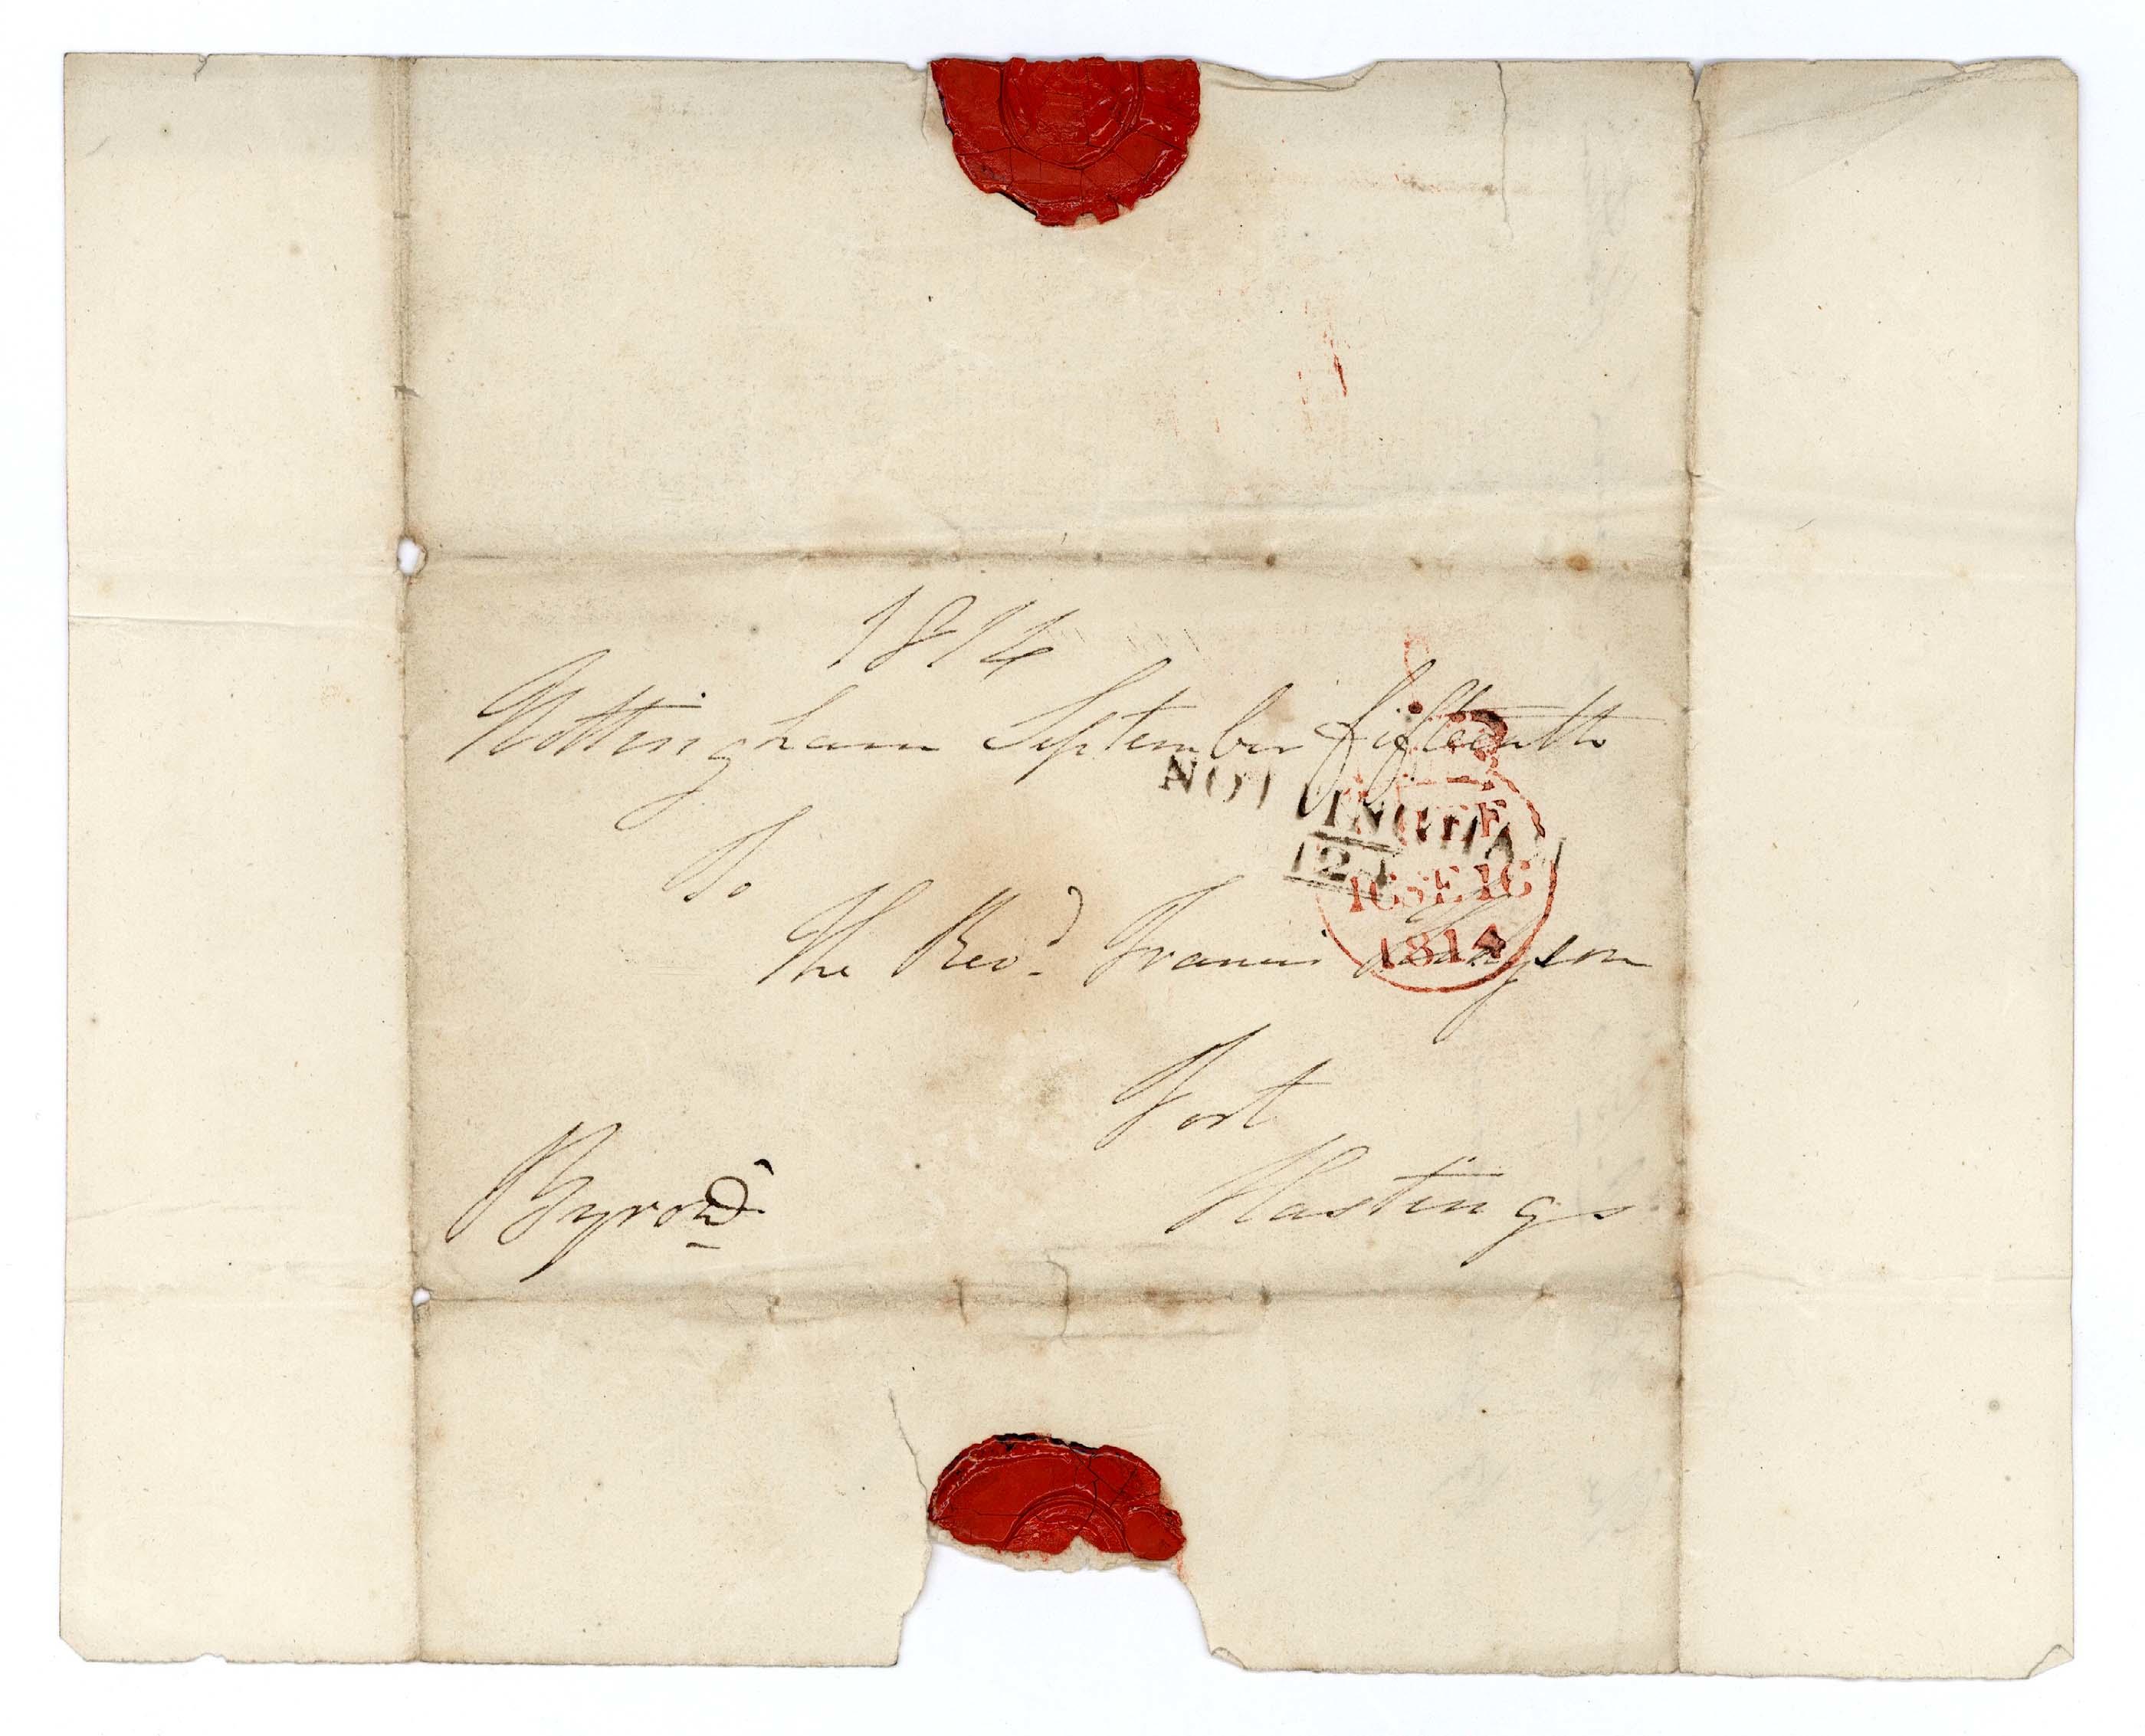 1814
Nottingham September fifteenth
NOTTINGHAM
To
FREE
16 SE 16
1814
The Revd. Francis Hodgson
Post
Hastings
Byron